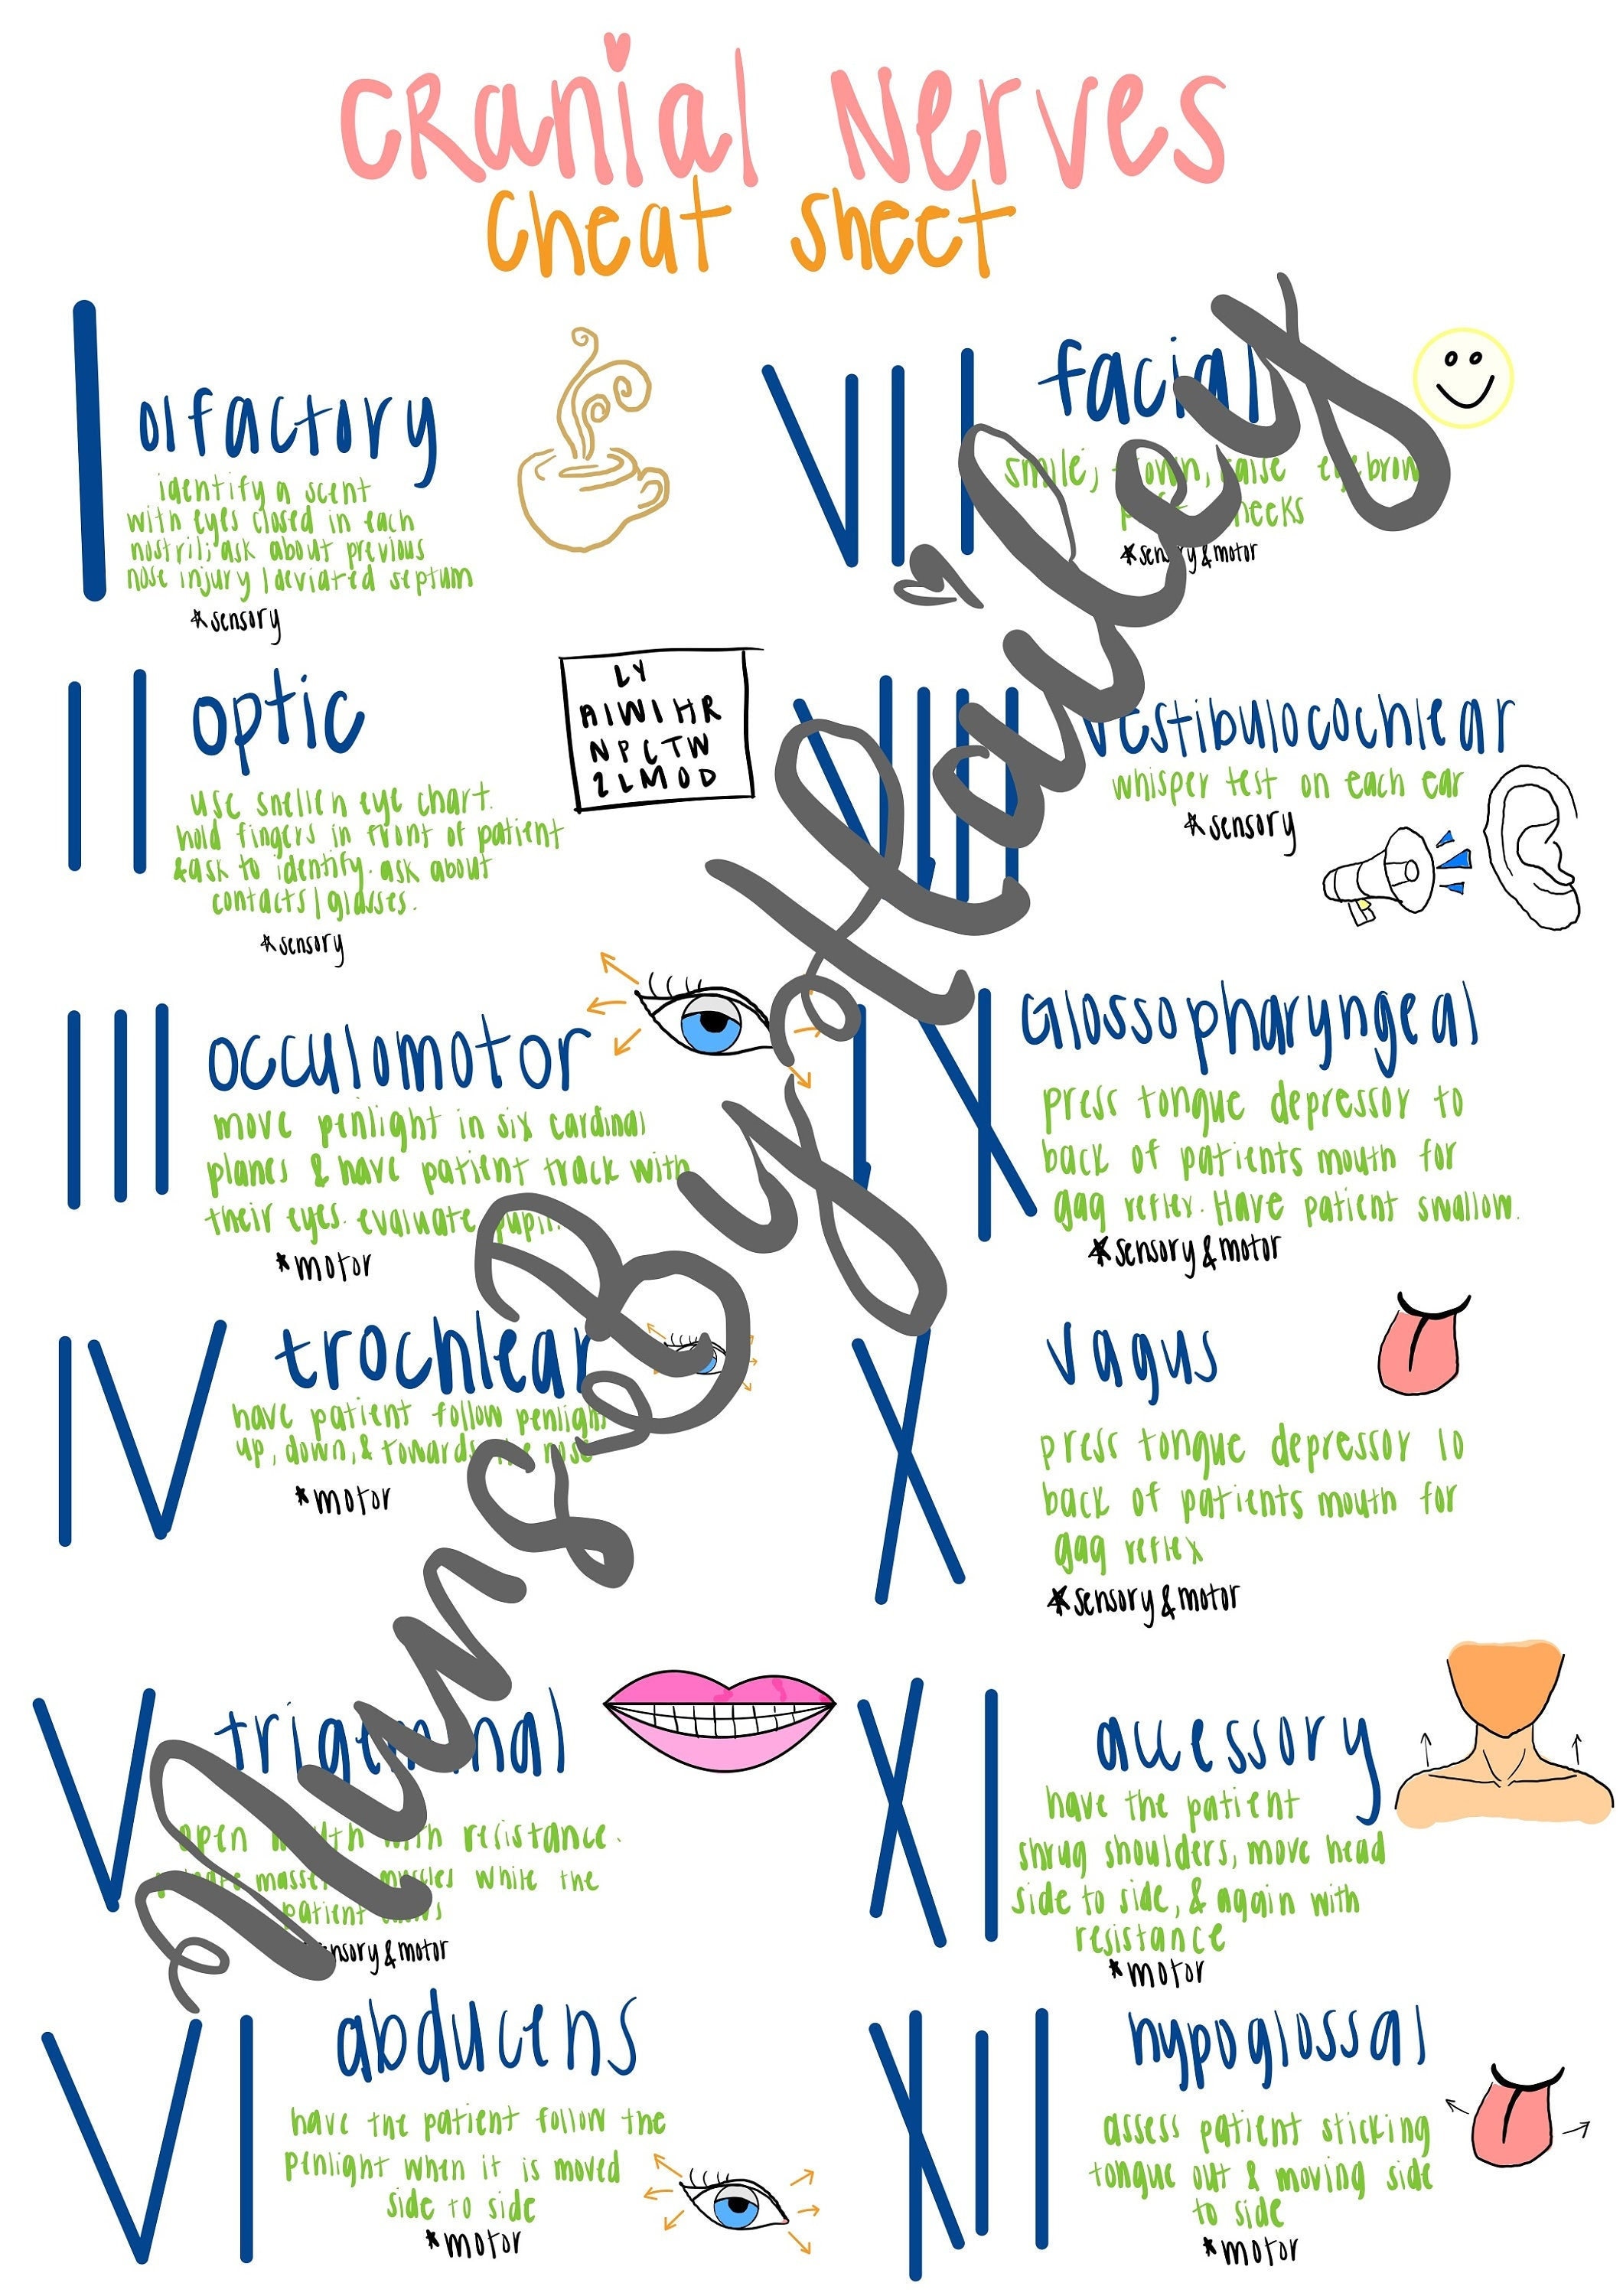 CRanial Nerves
cheat sheet
I
olfactory
identify a scent
with eyes closed in each
nostril; ask about previous
nose injury/deviated septum
*sensory
II
optic
use snellen eye chart.
hold fingers in front of patient
& ask to identify. ask about
contacts/glasses.
*sensory
LY
AIWIHR
NPCTW
2LMOD
III
occulomotor
move penlight in six cardinal
planes & have patient track with
their eyes. evaluate pupil.
*motor
IV
trochlear
have patient follow penlight
up, down, & towards the nose
*motor
V
trigeminal
open mouth with resistance.
muscles while the
patient
sensory & motor
VI
abducens
have the patient follow the
penlight when it is moved
side to side
*motor
VII
facial
smile, frown, raise eyebrow
cheeks
*sensory & motor
VIII
vestibulocochlear
whisper test on each ear
*sensory
IX
Glossopharyngeal
press tongue depressor to
back of patients mouth for
gag reflex. Have patient swallow.
*sensory & motor
X
vagus
press tongue depressor to
back of patients mouth for
gag reflex
*sensory & motor
XI
accessory
have the patient
shrug shoulders, move head
side to side, & again with
resistance
*motor
XII
hypoglossal
assess patient sticking
tongue out & moving side
to side
*motor
NurseByHailey